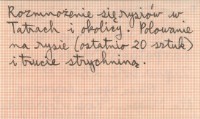 Rozmnożenie się rysiów w
Tatrach i okolicy. Polowanie
na rysie (ostatnio 20 sztuk)
i trucie strychniną.